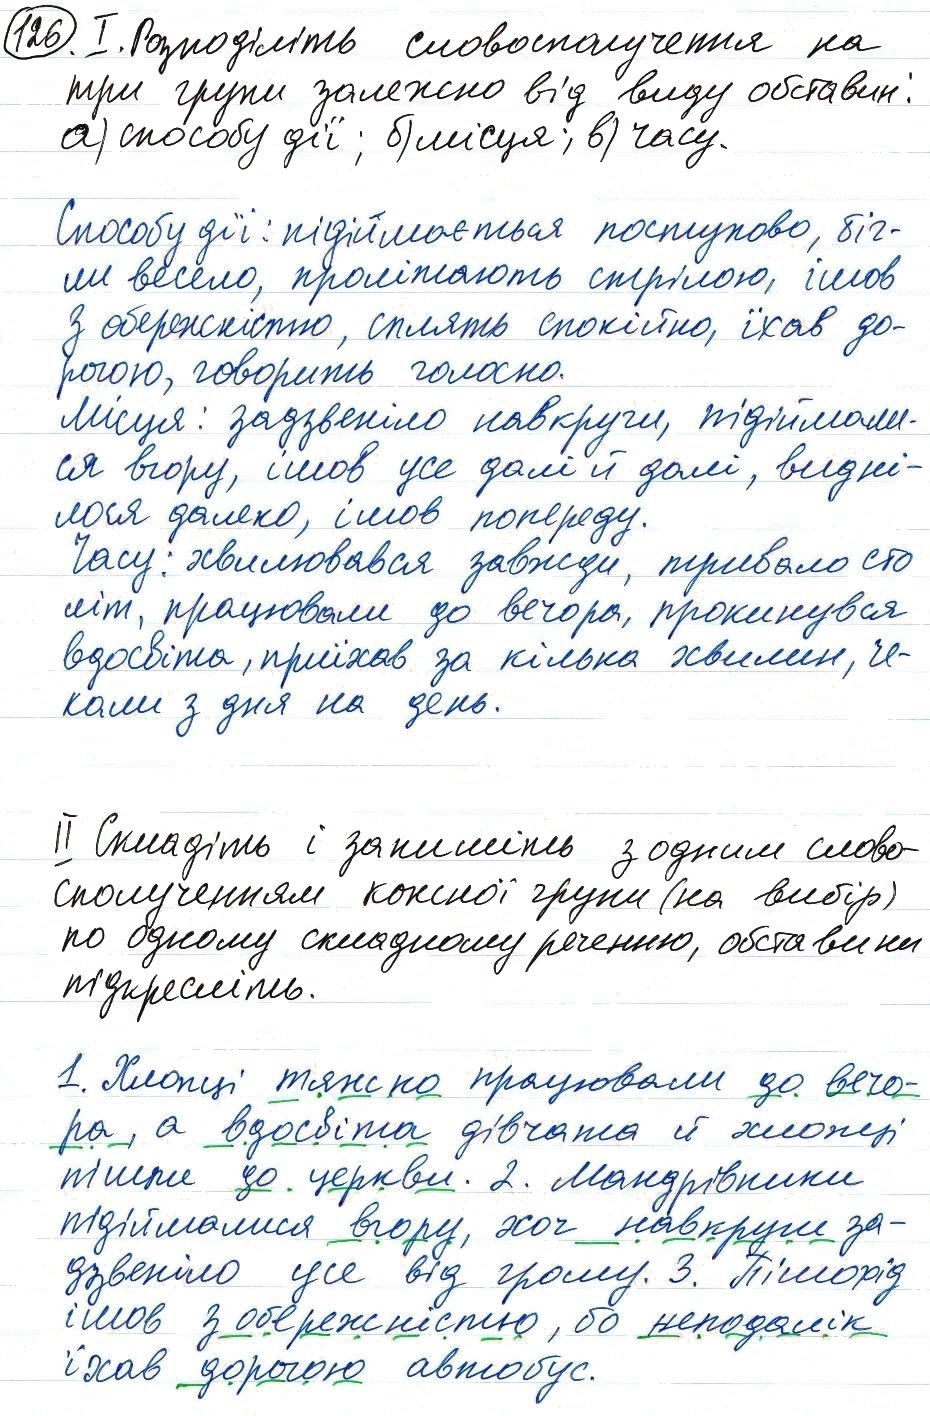 126. I. Розподіліть словосполучення на
три групи залежно від виду обставин:
а) способу дії; б) місця; в) часу.
Способу дії: підіймається поступово, біг-
ли весело, пролітають стрілою, ішов
з обережністю, сплять спокійно, їхав до-
рогою, говорить голосно.
Місця: задзвеніло навкруги, підіймали-
ся вгору, ішов усе далі й далі, видні-
лося далеко, ішов попереду.
Часу: хвилювався завжди, тривало сто
літ, працювали до вечора, прокинувся
вдосвіта, приїхав за кілька хвилин, че-
кали з дня на день.
II Складіть і запишіть з одним слово-
сполученням кожної групи (на вибір)
по одному складному реченню, обставини
підкресліть.
1. Хлопці тяжко працювали до вечо-
ра, а вдосвіта дівчата й хлопці
пішли до церкви. 2. Мандрівники
підіймалися вгору, хоч навкруги за-
дзвеніло усе від грому. 3. Пішохід
ішов з обережністю, бо неподалік
їхав дорогою автобус.